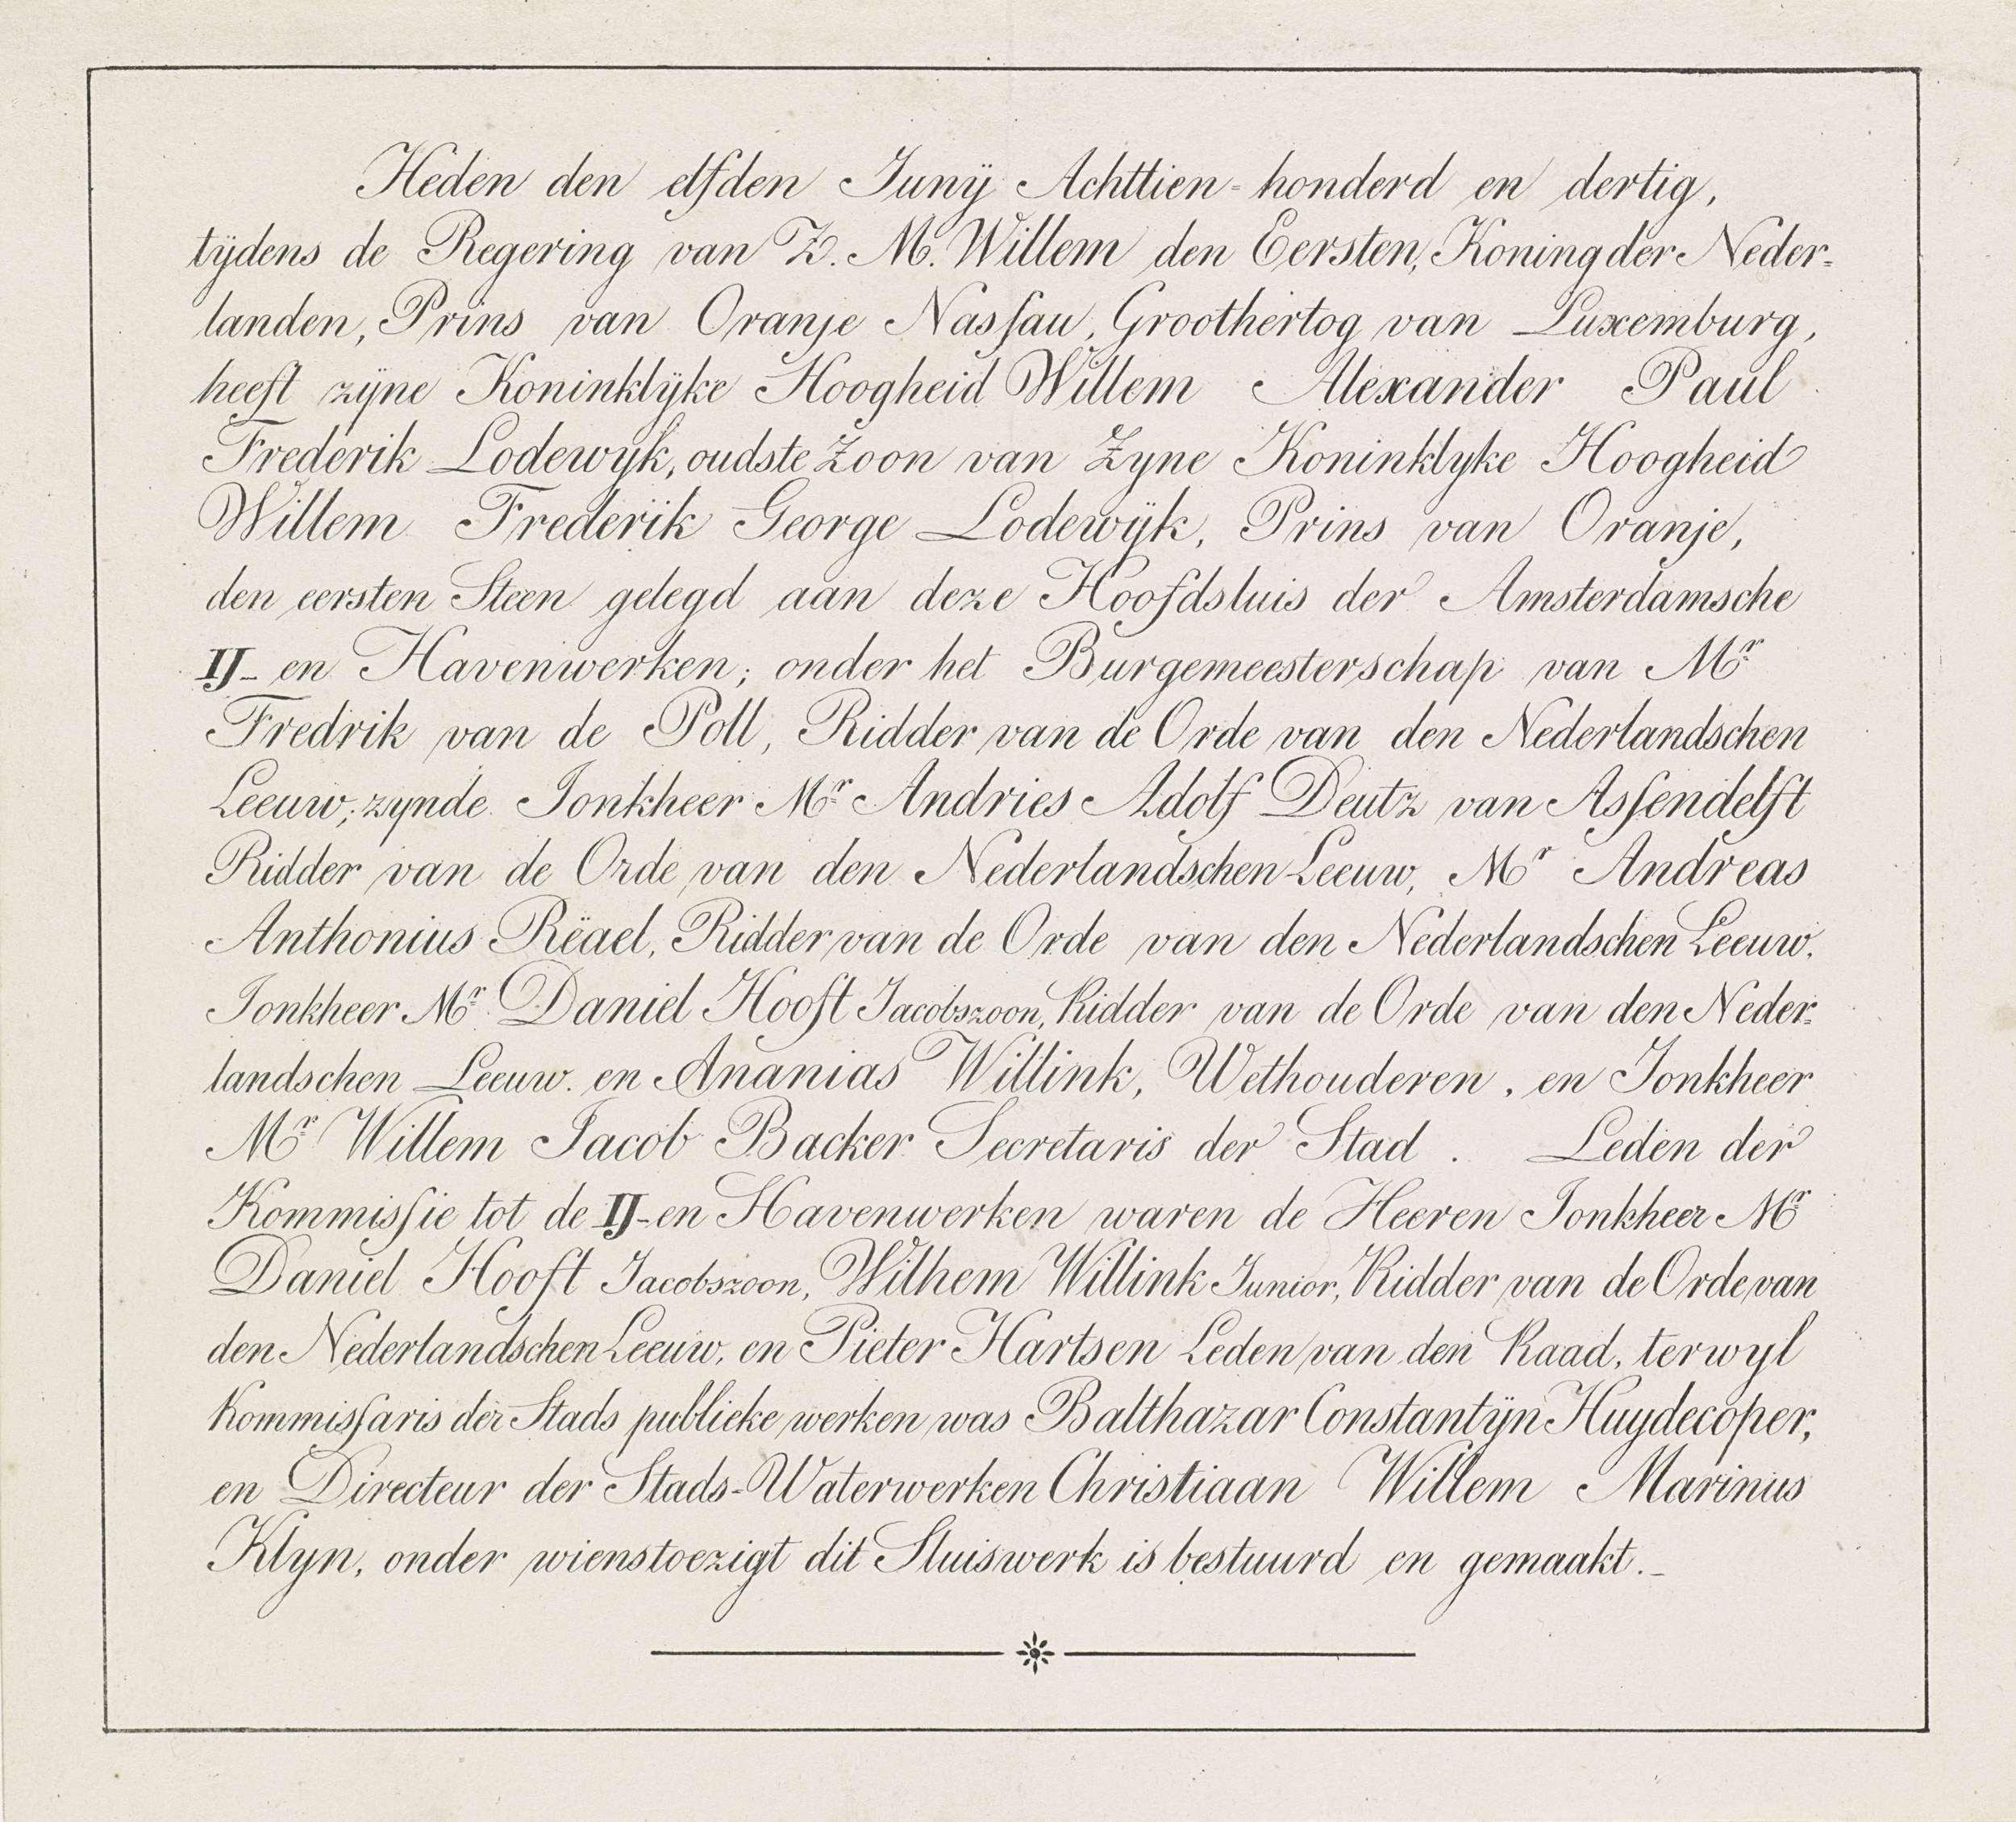 Heden den elfden Junÿ Achttien-honderd en dertig,
tÿdens de Regering van Z. M. Willem den Eersten, Koning der Neder-
landen, Prins van Oranje Nasſau, Groothertog van Luxemburg,
heeft zÿne Koninklÿke Hoogheid Willem Alexander Paul
Frederik Lodewyk, oudste Zoon van Zyne Koninklyke Hoogheid
Willem Frederik George Lodewÿk, Prins van Oranje,
den eersten Steen gelegd aan deze Hoofdsluis der Amsterdamsche
IJ- en Havenwerken; onder het Burgemeesterschap van Mr.
Fredrik van de Poll, Ridder van de Orde van den Nederlandschen
Leeuw; zynde Jonkheer Mr. Andries Adolf Deutz van Asſendelft
Ridder van de Orde van den Nederlandschen Leeuw, Mr. Andreas
Anthonius Rëael, Ridder van de Orde van den Nederlandschen Leeuw.
Jonkheer Mr. Daniel Hooft Jacobszoon, Ridder van de Orde van den Neder-
landschen Leeuw. en Ananias Willink, Wethouderen, en Jonkheer
Mr. Willem Jacob Backer Secretaris der Stad. Leden der
Kommisſie tot de IJ-en Havenwerken waren de Heeren Jonkheer Mr.
Daniel Hooft Jacobszoon, Wilhem Willink Junior, Ridder van de Orde van
den Nederlandschen Leeuw, en Pieter Hartsen Leden van den Raad, terwyl
Kommisſaris der Stads publieke werken was Balthazar Constantÿn Huydecoper,
en Directeur der Stads-Waterwerken Christiaan Willem Marinus
Klyn, onder wiens toezigt dit Sluiswerk is bestuurd en gemaakt.-